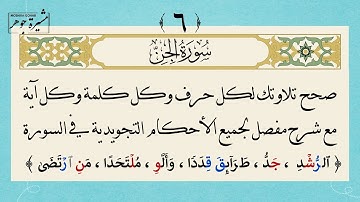 مشيرة جوهر
MOSHIRA GOHAR
﴿ ٦ ﴾
سُورَةُ الجِنِّ
صحح تلاوتك لكل حرف وكل كلمة وكل آية
مع شرح مفصل لجميع الأحكام التجويدية في السورة
﴿ ٱلرُّشْدِ ، جَدُّ ، طَرَآئِقَ قِدَدًا ، وَأَلَّوِ ، مُلْتَحَدًا ، مَنِ ٱرْتَضَىٰ ﴾